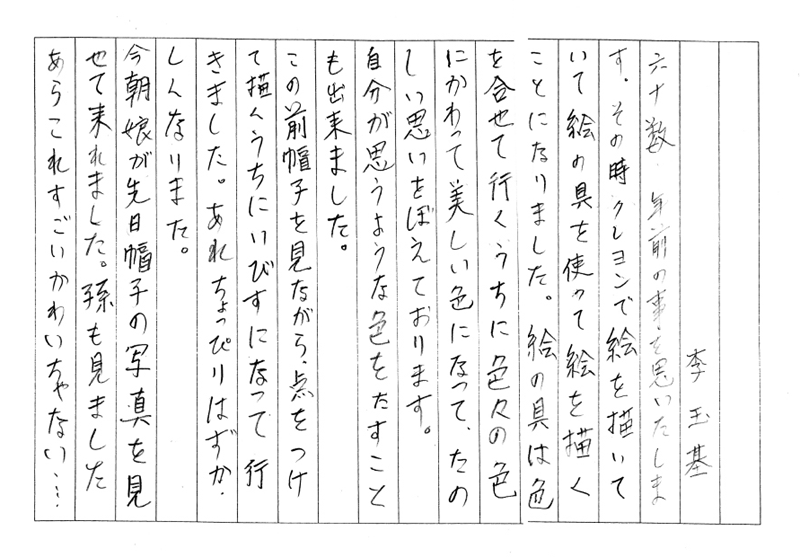 李玉基
六十数年前の事を思いたしま
す。その時クレヨンで絵を描いて
いて絵の具を使って絵を描く
ことになりました。絵の具は色
を合せて行くうちに色々の色
にかわって美しい色になって、たの
しい思いをぼえております。
自分が思うような色をたすこと
も出来ました。
この前帽子を見ながら、点をつけ
て描くうちにいびすになって行
きました。あれちょっぴりはずか
しんなりまた。
今朝娘が先日帽子の写真を見
せて来れました。孫も見ました
あらこれすごいかわいちゃない…